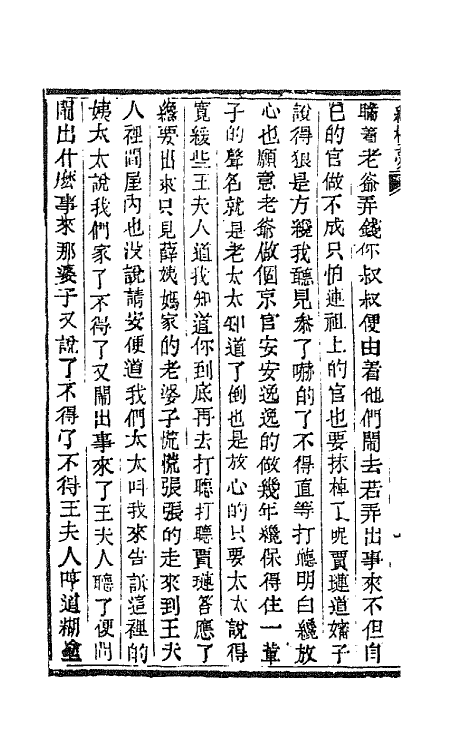 瞞着老爺弄錢你叔叔便由着他們鬧去若弄出事來不但自
已的官做不成只怕連祖上的官也要抹掉了呢賈璉道嬸子
說得狠是方纔我聽見叅了嚇的了不得直等打聽明白纔放
心也願意老爺做個京官安安逸逸的做幾年纔保得住一輩
子的聲名就是老太太知道了倒也是放心的只要太太說得
寬緩些王夫人道我知道你到底再去打聽打聽賈璉答應了
纔要出來只見薛姨媽家的老婆子慌慌張張的走來到王夫
人裡間屋內也没說請安便道我們太太叫我來告訴這裡的
姨太太說我們家了不得了又鬧出事來了王夫人聽了便問
鬧出什麽事來那婆子又說了不得了不得王夫人哼道糊塗